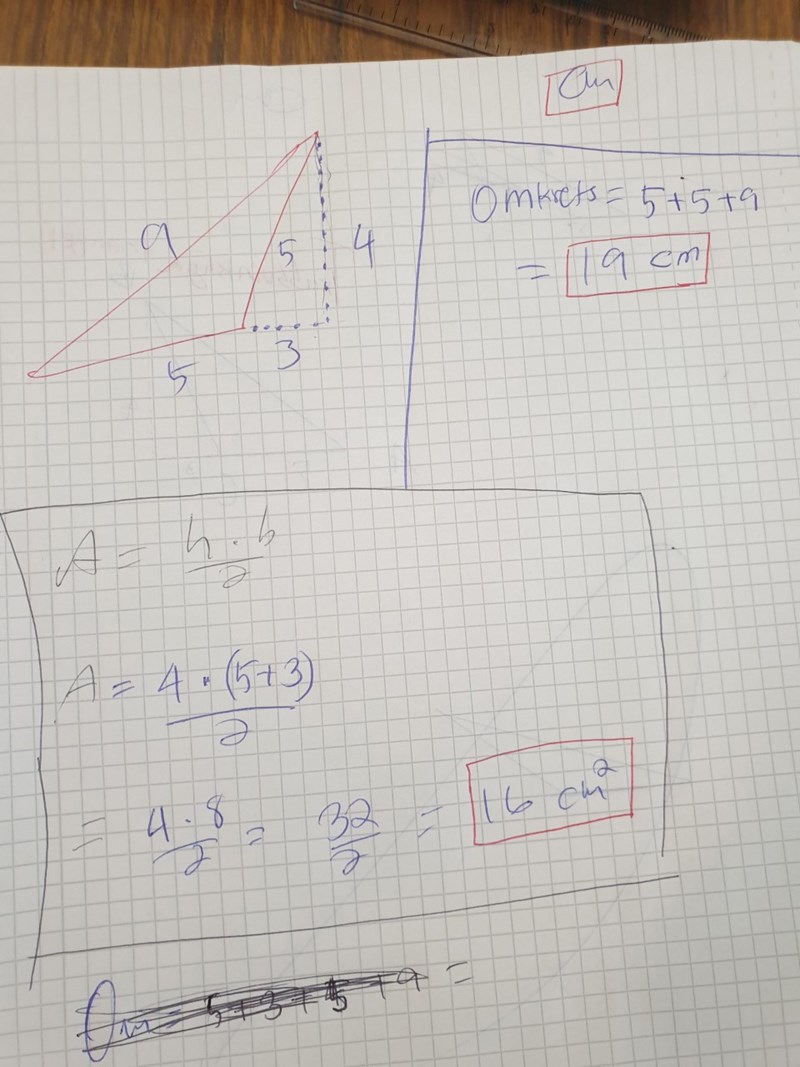 cm
9
5
4
3
5
Omkrets = 5+5+9
= 19 cm
A = h · b / 2
A = 4 · (5+3) / 2
= 4 · 8 / 2 = 32 / 2 = 16 cm²
Om = 5+3+5+9 =